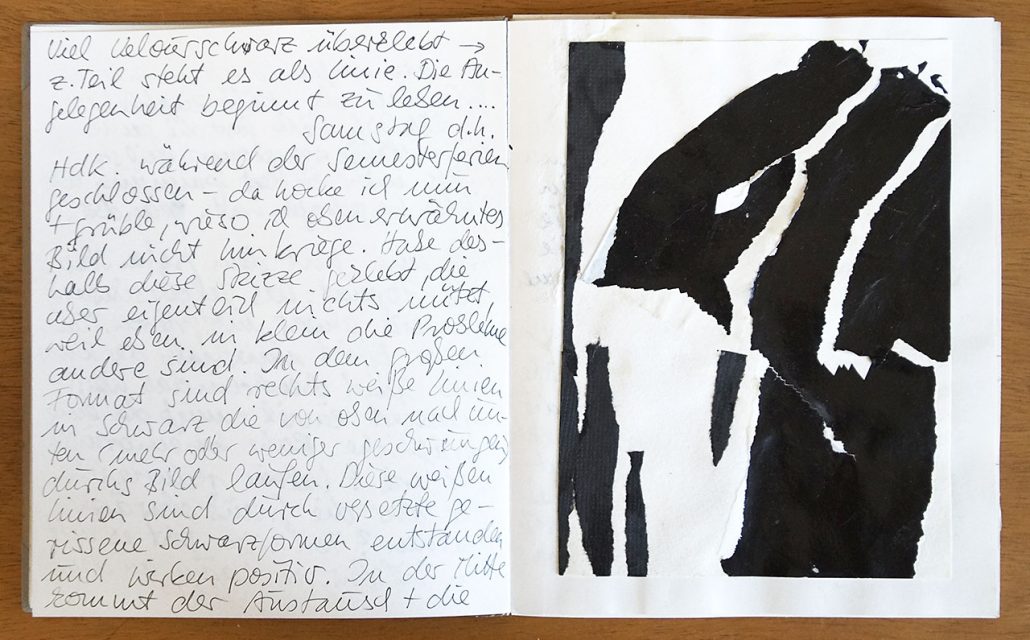 Viel Velourschwarz überklebt →
z. Teil steht es als Linie. Die An-
gelegenheit beginnt zu leben....
Samstag d.h.
Hdk. während der Semesterferien
geschlossen – da hocke ich nun
+ grüble, wieso ich oben erwähntes
Bild nicht hinkriege. Habe des-
halb diese Skizze geklebt, die
aber eigentlich nichts nützt,
weil eben in klein die Probleme
andere sind. In dem großen
Format sind rechts weiße Linien
in Schwarz die von oben nach un-
ten (mehr oder weniger geschwungen)
durchs Bild laufen. Diese weißen
Linien sind durch versetzte ge-
rissene Schwarzformen entstanden
und wirken positiv. In der Mitte
kommt der Austausch + die